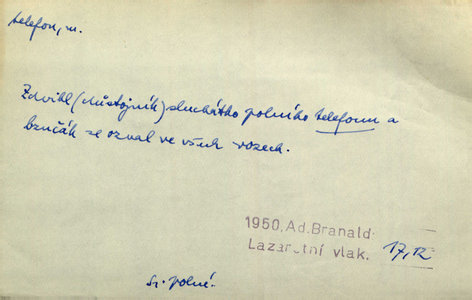 telefon, m.
Zdvihl (důstojník) sluchátko polního telefonu a
bzučák se ozval ve všech vozech.
1950, Ad. Branald
Lazaretní vlak. 17, 12
Sr. polní.